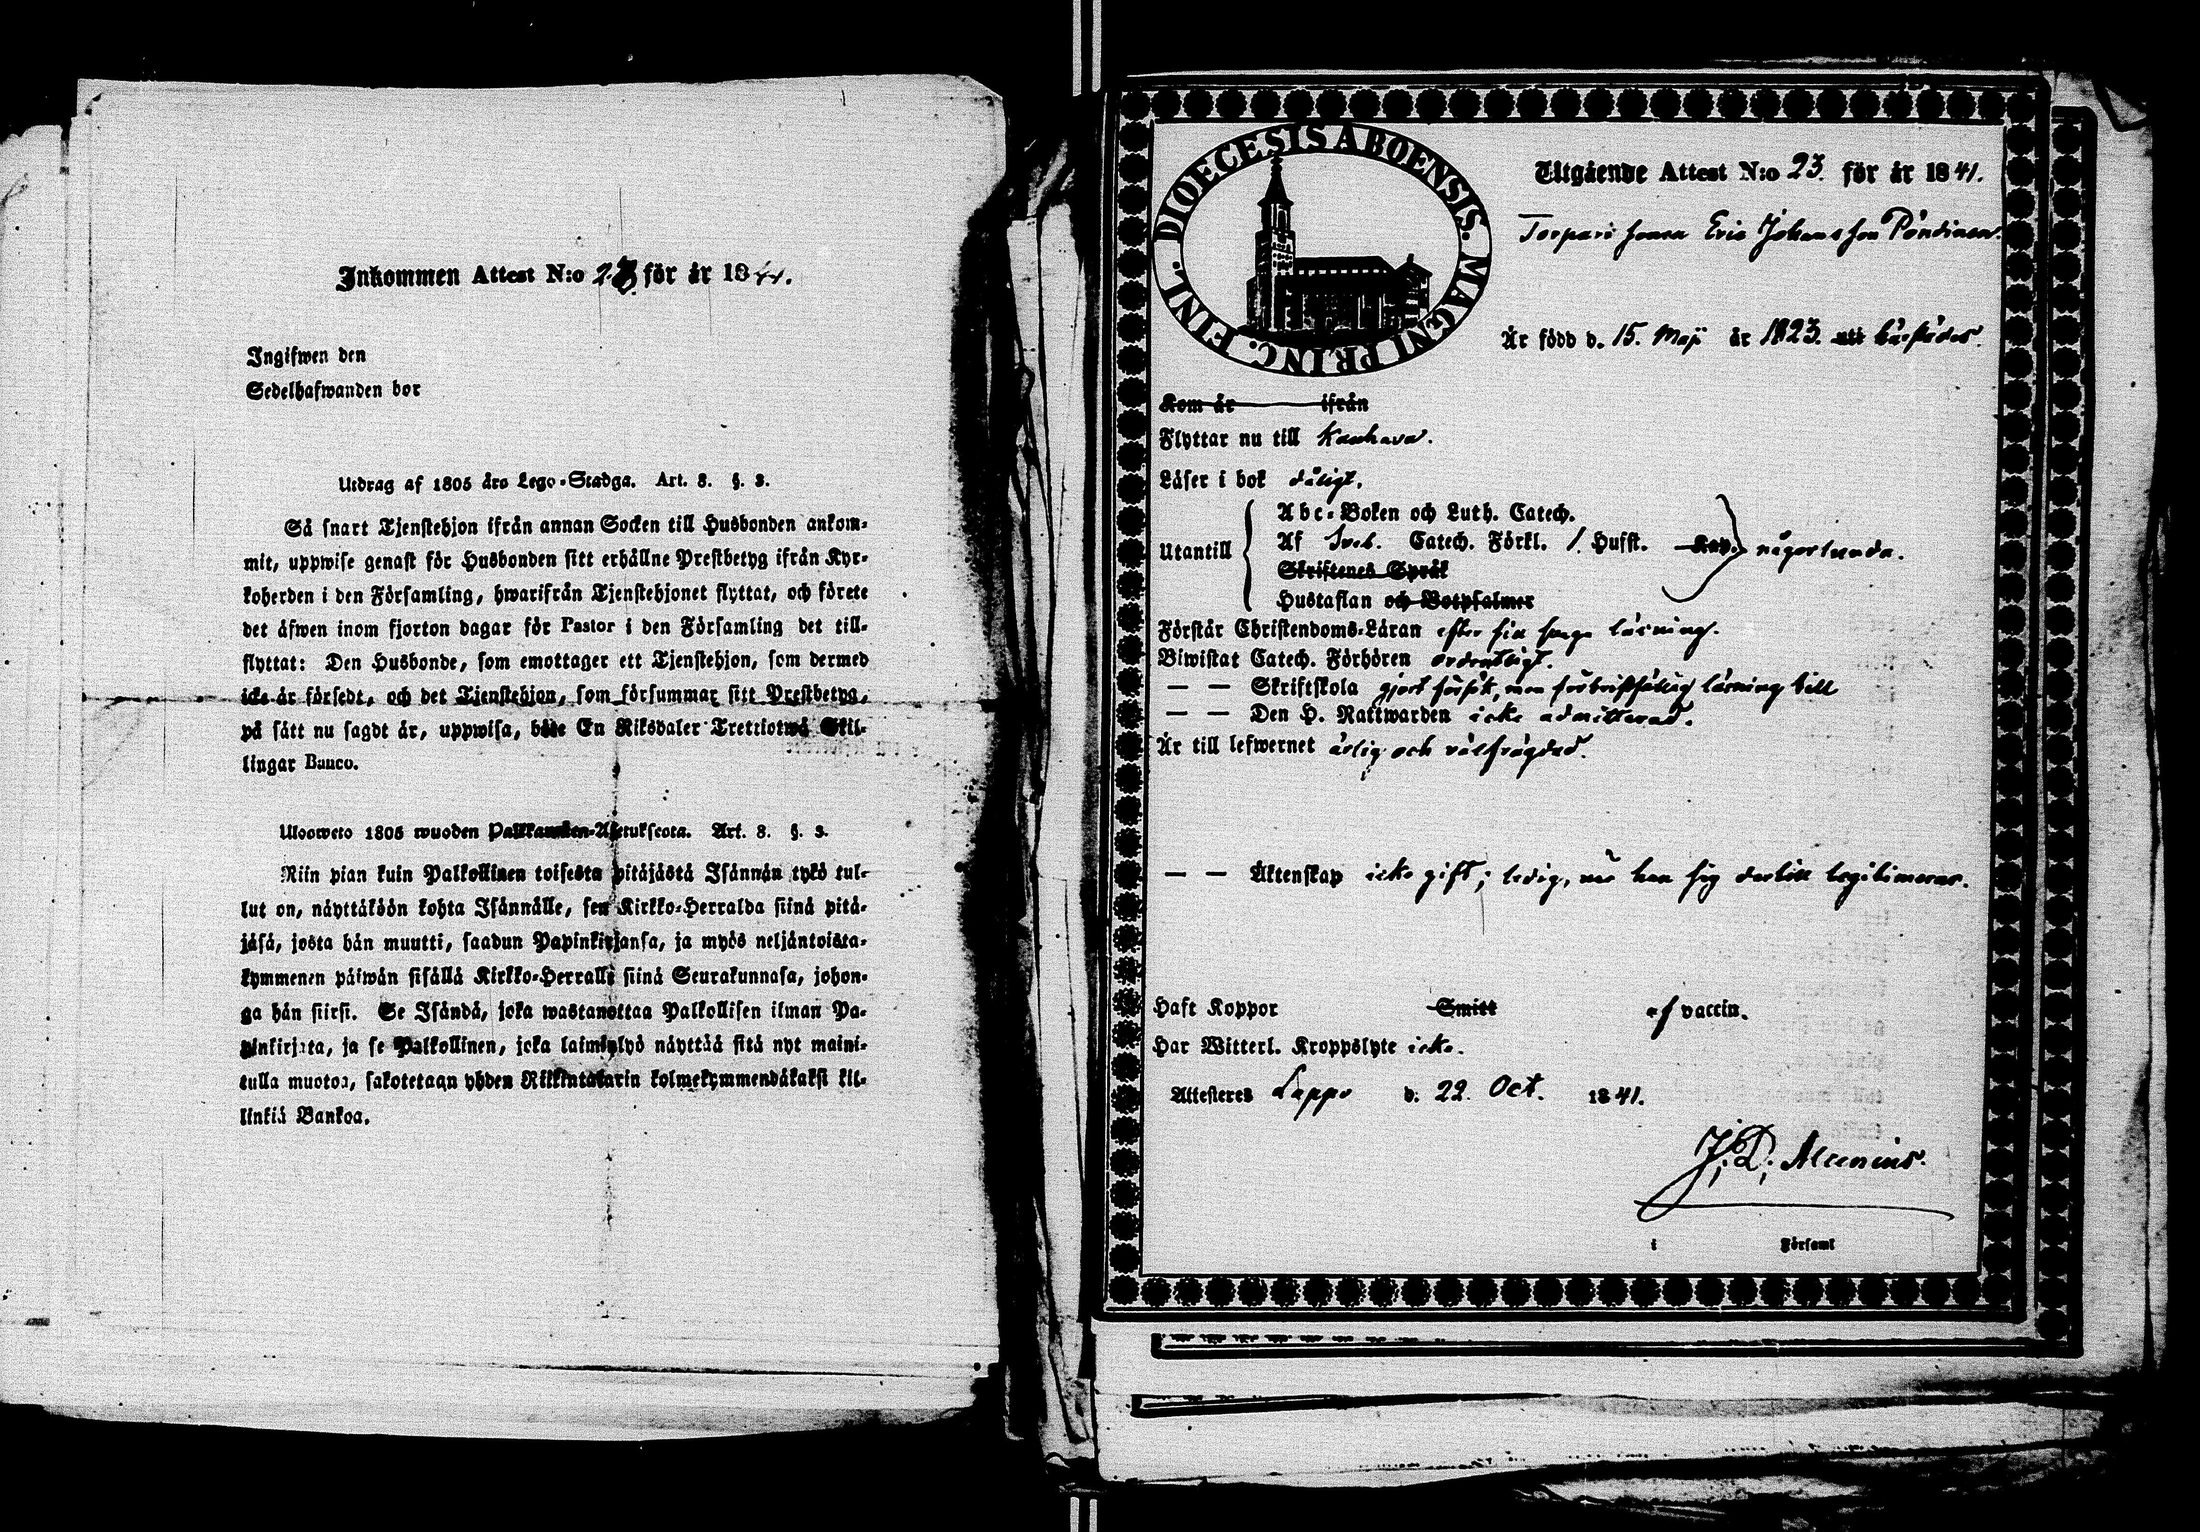 Inkommen Attest N:o 23 för år 1841.
Ingifwen den
Sedelhafwanden bor
Utdrag af 1805 års Lego-Stadga. Art. 8. §. 3.
Så snart Tjenstehjon ifrån annan Socken till Husbonden ankom-
mit, uppwise genast för Husbonden sitt erhållne Prestbetyg ifrån Kyr-
koherden i den Församling, hwarifrån Tjenstehjonet flyttat, och förete
det äfwen inom fjorton dagar för Pastor i den Församling det till-
flyttat: Den Husbonde, som emottager ett Tjenstehjon, som dermed
icke är försedt, och det Tjenstehjon, som försummar sitt Prestbetyg,
på sätt nu sagdt är, uppwisa, böte En Riksdaler Trettiotwå Skil-
lingar Banco.
Uloosweto 1805 wuoden Palkkawäen-Asetuksesta. Art. 8. §. 3.
Niin pian kuin Palkollinen toisesta pitäjästä Isännän tykö tul-
lut on, näyttäköön kohta Isännälle, sen Kirkko-Herralda siinä pitä-
jäsä, josta hän muutti, saadun Papinkirjansa, ja myös neljäntoista-
kymmenen päiwän sisällä Kirkko-Herralle siinä Seurakunnasa, johon-
ga hän siirsi. Se Isändä, joka wastanottaa Palkollisen ilman Pa-
pinkirjata, ja se Palkollinen, joka laiminlyö näyttää sitä nyt maini-
tulla muotoa, sakotetaan yhden Riikintalarin kolmekymmendäkaksi kil-
linkiä Bankoa.
DIOECESIS ABOENSIS. MAGNI PRINC. FINL.
Utgående Attest N:o 23. för år 1841.
Torpare sonen Eric Johansson Pöndinen.
Är född d. 15. Maji år 1823. uti härstädes.
Kom år ifrån
Flyttar nu till Kauhava.
Läser i bok dåligt.
Utantill
Abc-Boken och Luth. Catech.
Af Sveb. Catech. Förkl. /. Hufst. Kap. någorlunda.
Skriftenes Språk
Hustaflan och Botpsalmer
Förstår Christendoms-Läran efter sin svaga läsning.
Biwistat Catech. Förhören ordentligt.
— — Skriftskola gjort försök, men för bristfällig läsning till
— — Den H. Nattwarden icke admitterad.
Är till lefwernet ärlig och välfrägdad.
— — Äktenskap icke gift; ledig, när han sig dertill legitimerar.
Haft Koppor Smitt af vaccin.
Har Witterl. Kroppslyte icke.
Attesteras Lappo d. 22. Oct. 1841.
J. D. Alcenius.
i Församl